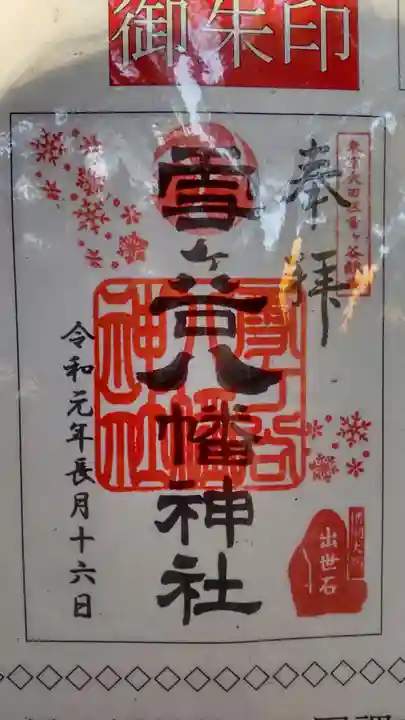 御朱印
奉拝
東京大田区雪ヶ谷鎮
雪ヶ谷八幡神社
雪ヶ谷八幡神社
令和元年長月十六日
出世石